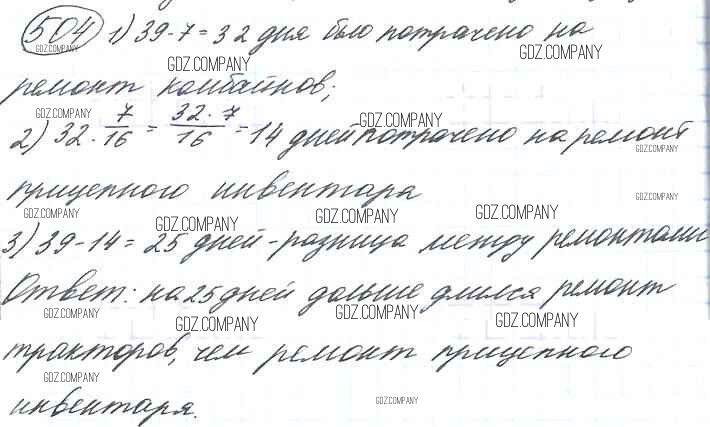 504 1) 39-7=32 дня было потрачено на
GDZ.COMPANY GDZ.COMPANY GDZ.COMPANY
ремонт комбайнов;
GDZ.COMPANY GDZ.COMPANY
2) 32 · 7/16 = 32·7/16 = 14 дней потрачено на ремонт
GDZ.COMPANY
прицепного инвентаря
GDZ.COMPANY
GDZ.COMPANY GDZ.COMPANY GDZ.COMPANY GDZ.COMPANY
3) 39-14=25 дней - разница между ремонтами
Ответ: на 25 дней дольше длился ремонт
GDZ.COMPANY GDZ.COMPANY GDZ.COMPANY GDZ.COMPANY
тракторов, чем ремонт прицепного
GDZ.COMPANY
инвентаря.
GDZ.COMPANY